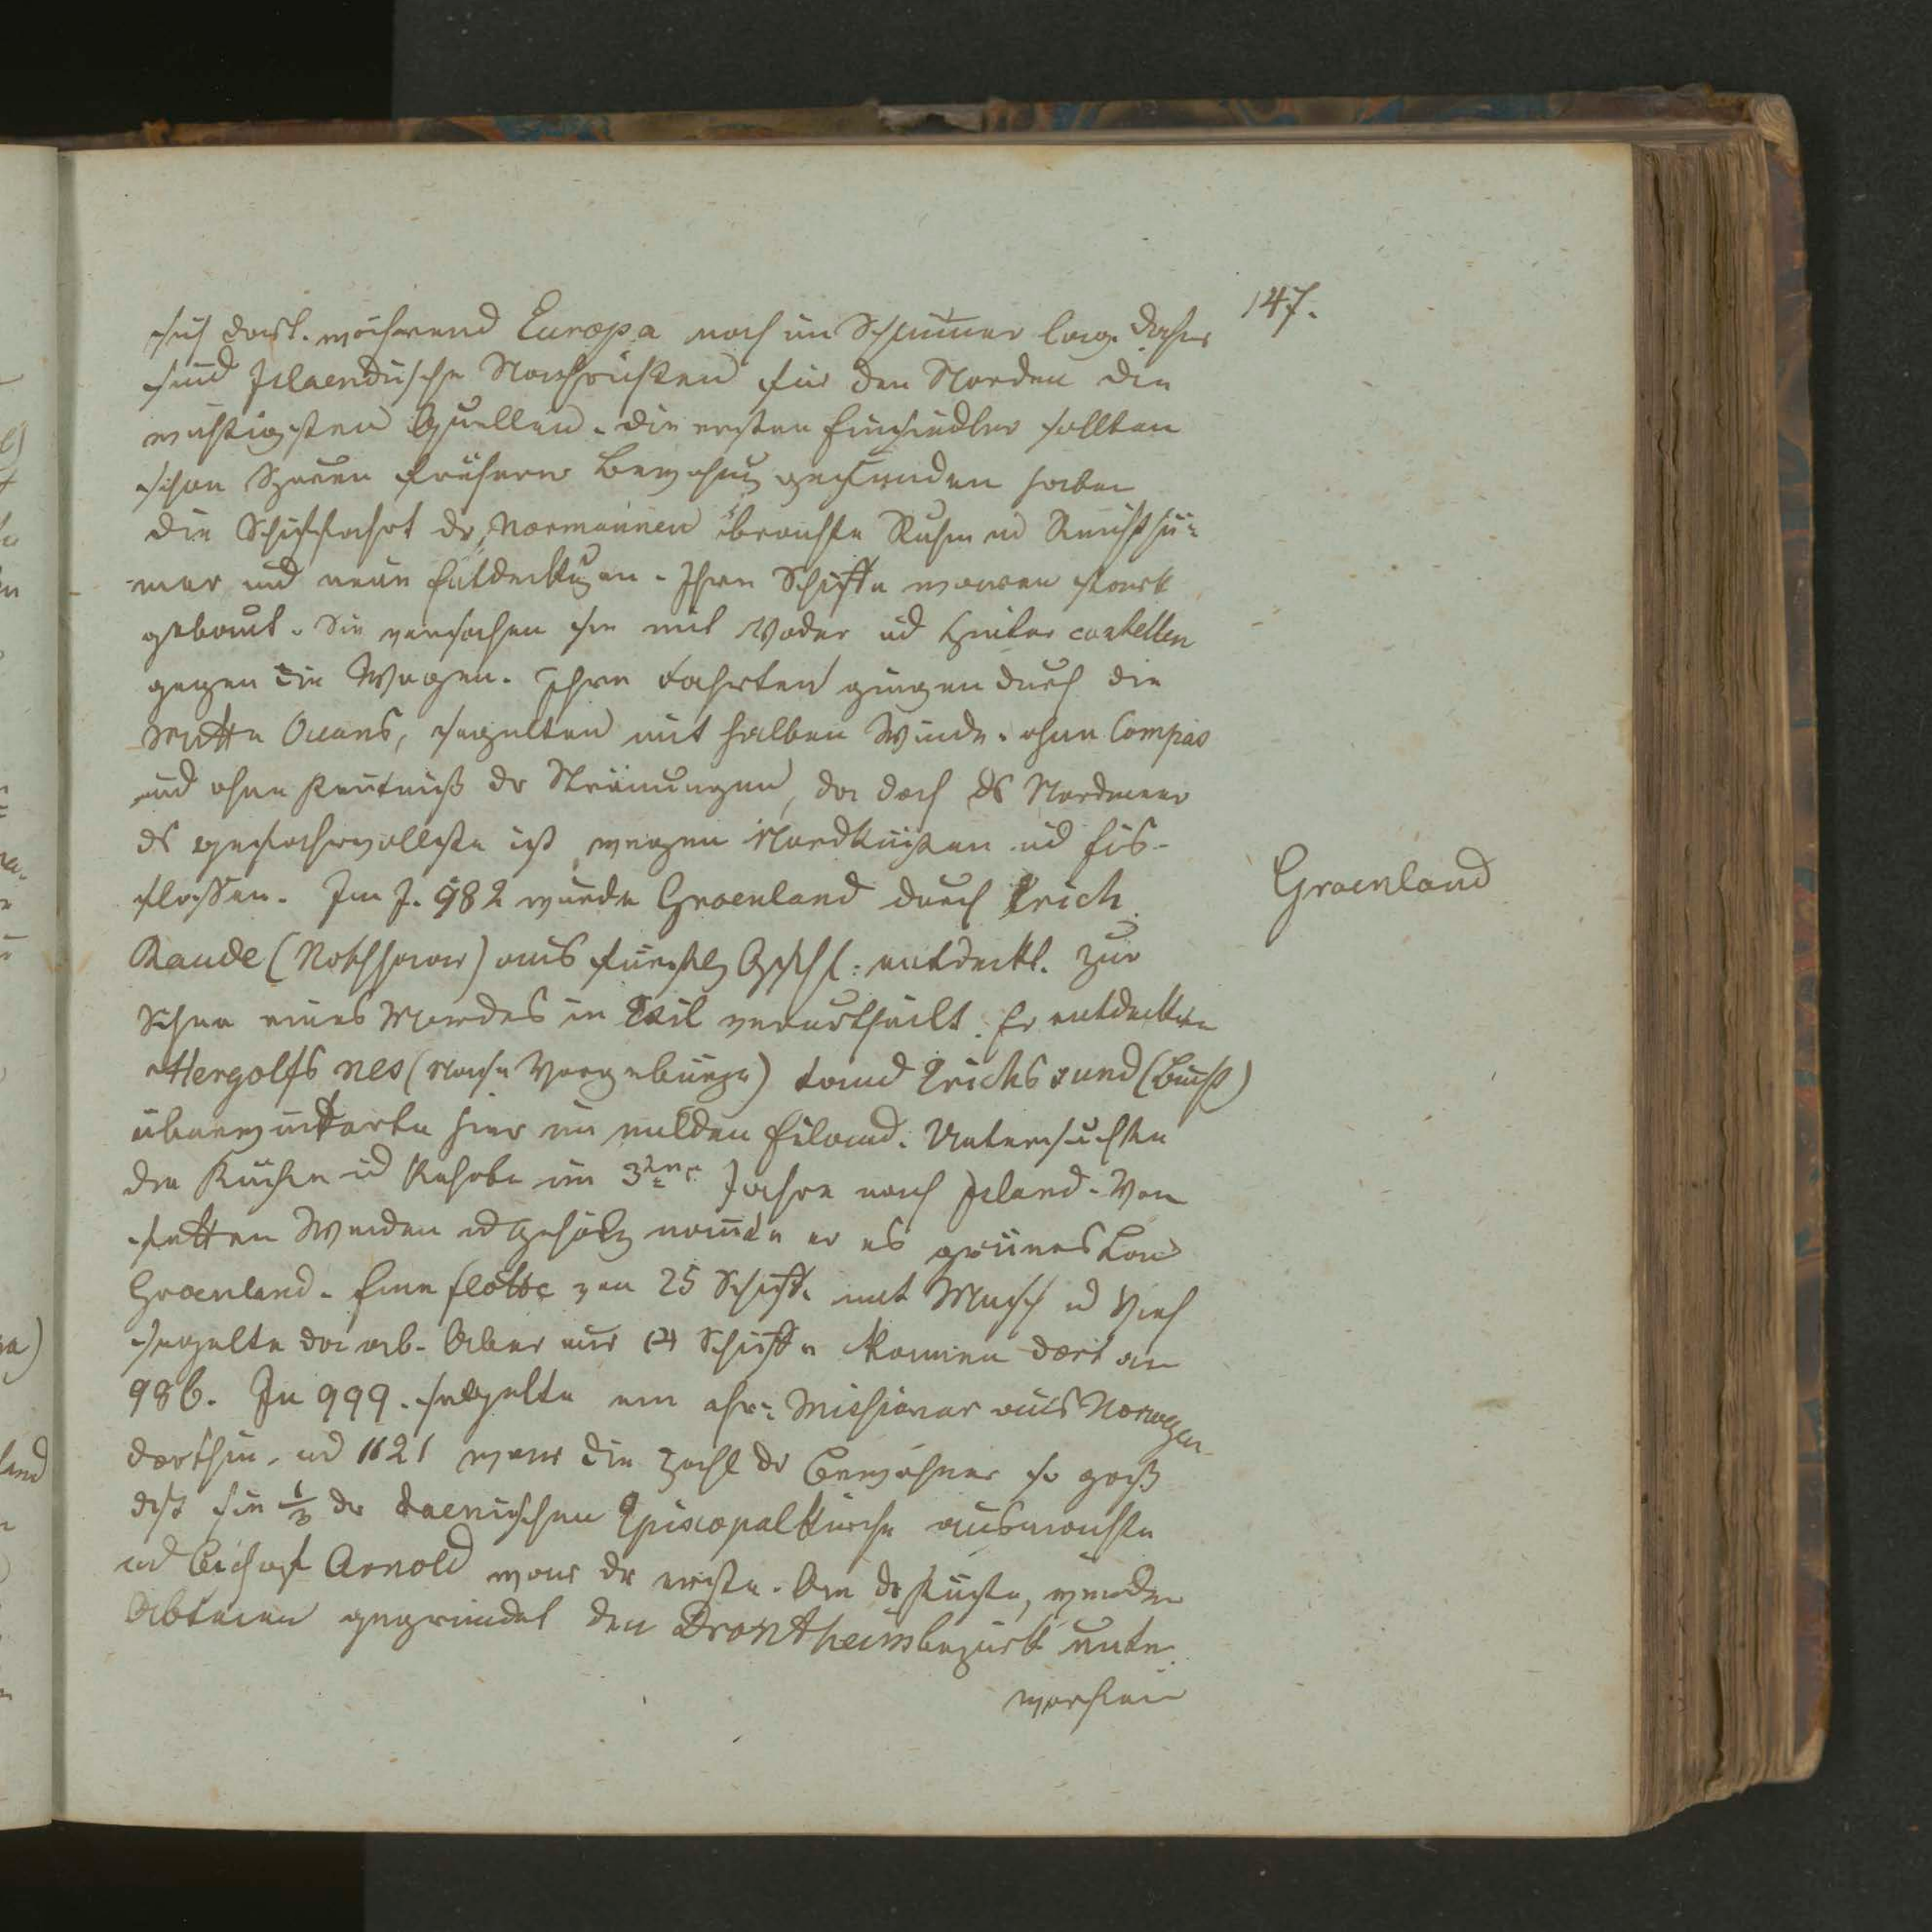 147.
sich dort. während Europa noch im Schlummer lag. Daher
sind Islaendische Nachrichten für den Norden die
wichtigsten Quellen. die ersten Einsiedler sollten
schon Spuren früherer Bewohng gefunden haben
die Schiffahrt der Normannen brachte Ruhm ud Reichthü-
mer und neue Entdeckungen. Ihre Schiffe waren stark
gebaut. Sie versahen sie mit Vorder ud Hinter castellen
gegen die Wogen. Ihre Fahrten gingen durch die
Mitte Oceans, segelten mit halben Winde. ohne Compas
und ohne Kentniß dr Strömungen, da doch ds Nordmeer
ds gefahrvollste ist, wegen Nordküsten ud Eis-
flossen. Im J. 982 wurde Groenland durch Erich
Groenland
Raude (Rothhaar) aus entdeckt. zur
Sühne eines Mordes in Exil verurtheilt. Er entdeckte
Hergolfs nes (Vorgebürge) fand Erichs sund (Bucht)
überwinterte hier im milden Eiland. Untersuchte
die Küste ud kehrte im 3ten Jahre nach Island. Von
fetten Weiden ud Gehölz nannte er es grünes Land
Groenland. Eine flotte von 25 Schiffe mit Mensch ud Vieh
segelte da ab. Aber nur 14 Schiffe kamen dort an
986. In 999. segelte ein chr: Missionar aus Norwegen
dorthin, ud 1121 war die Zahl dr Bewohner so groß
daß sie 1/3 der daenischen Episcopalkirche ausmachte
ud Bischof Arnold war dr erste. An dr Küste, wurden
Abteien gegründet den Drontheimbezirk unter
worfen